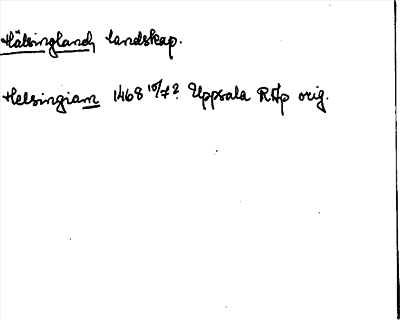 Hälsingland, landskap.
Helsingiam 1468 10/7? Uppsala RAp orig.